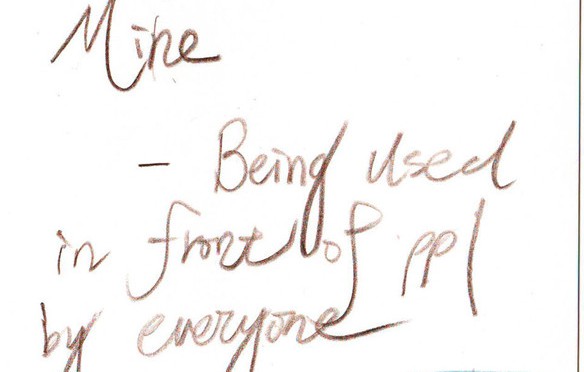 Mine
- Being used
in front of ppl
by everyone